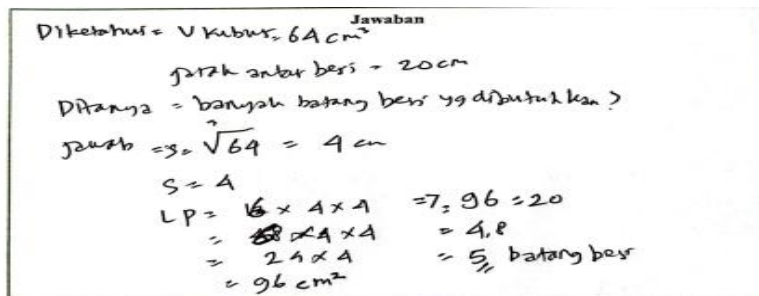 Jawaban
Diketahui = V kubus = 64 cm³
jarak antar besi = 20 cm
Ditanya = banyak batang besi yg dibutuhkan ?
Jawab = s = ³√64 = 4 cm
S = 4
LP = 6 × 4 × 4 => = 96 : 20
= × 4 × 4 = 4,8
= 24 × 4 = 5 batang besi
= 96 cm²